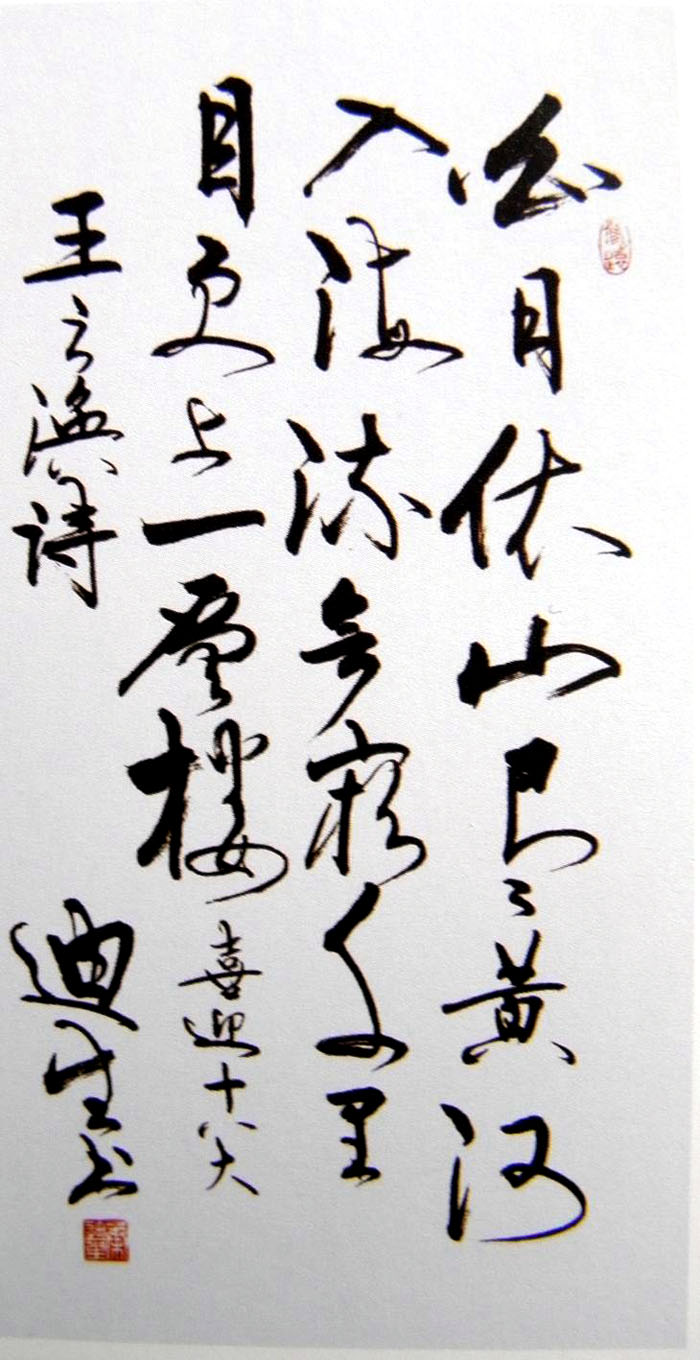 白日依山尽黄河
入海流欲穷千里
目更上一层楼 喜迎十八大
王之涣诗 迪生书